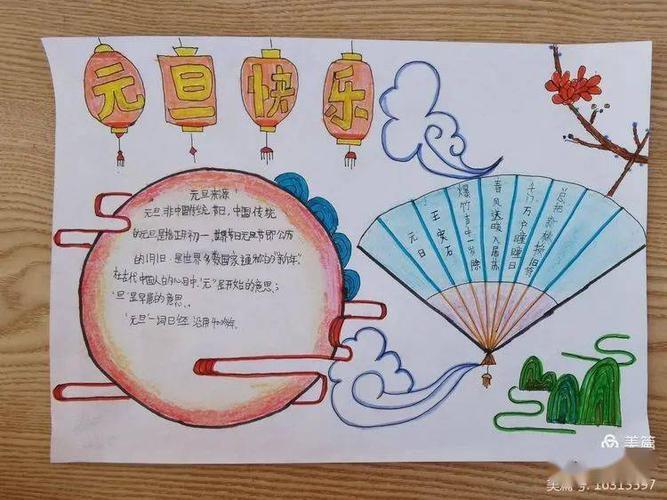 元旦快乐
元旦来源
元旦非中国传统节日,中国传统
的元旦是指正月初一,
的1月1日,是世界多数国家通称的"新年".
在古代中国人的心目中,"元"是开始的意思;
"旦"是早晨的意思.
"元旦"一词已经沿用
元日
王安石
爆竹声中一岁除
春风送暖入屠苏
千门万户曈曈日
总把新桃换旧符
美篇
美篇号:10313397